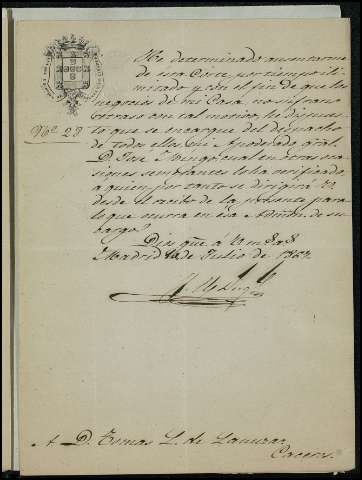 He determinado ausentarme
de esta Corte, por tiempo ili-
mitado y con el fin de que los
negocios de mi Casa no sufran
retraso con tal motivo, he dispues-
Nº 28
to que se encargue del despacho
de todos ellos mi Apoderado gral.
D. José cual en otras oca-
siones semejantes lo ha verificado,
a quien por tanto se dirigirá V.
desde el recibo de la presente para
lo que ocurra en esa Admón. de su
cargo.
Dios gue. à V. m. s. a. s.
Madrid de Julio de
A D. Tomas L. de
Caceres.